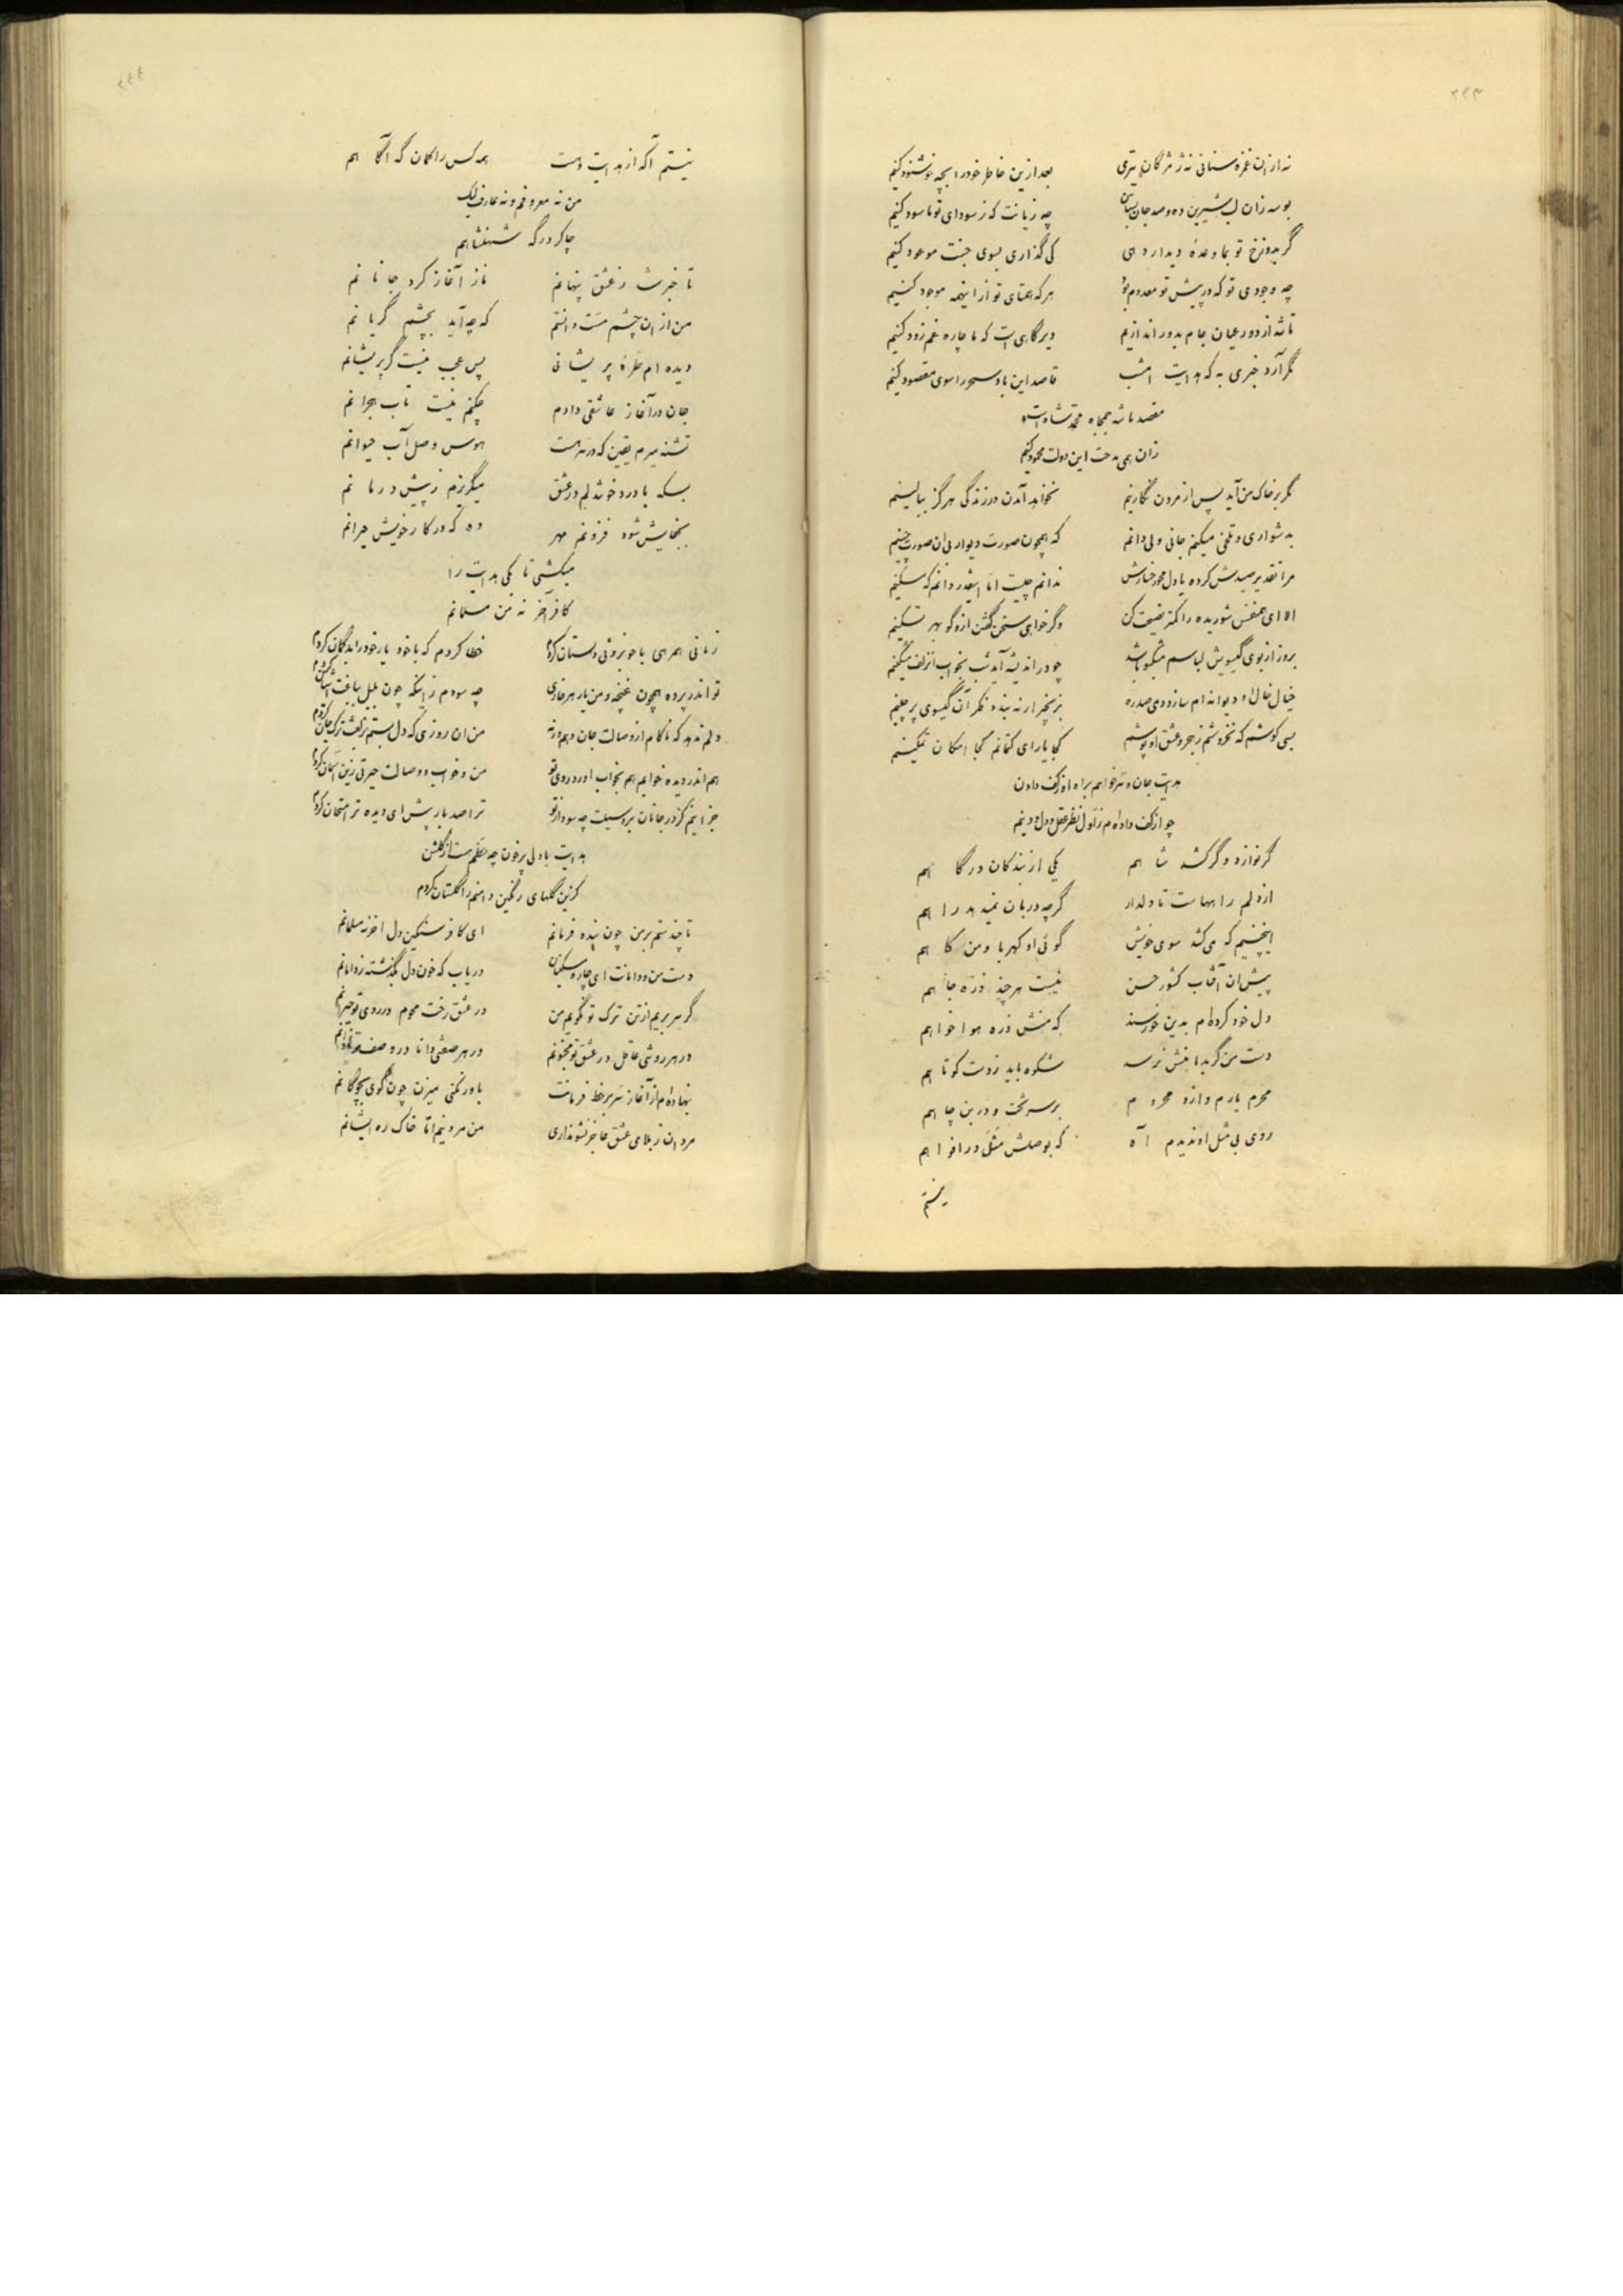 ۲۴۳
نه از ان غمزه سنانی نه ز مژگان تیری بعد ازین خاطر خود را بچه خوشنود کنیم
بوسه زان لب شیرین ده و صد جان بستان چه زیانت که ز سودای تو ما سود کنیم
گر بدوزخ تو بما وعدهٔ دیدار دهی کی گذاری بسوی جنت موعود کنیم
چه وجودی تو که در پیش تو معدوم بود هر که همتای تو از اینهمه موجود کنیم
تا شد از دور عیان جام بدور اندازیم دیرگاهی است که ما چاره غم زود کنیم
مگر آرد خبری به که هدایت امشب قاصد این باد سحر را سوی مقصود کنیم
مقصد ما شه جمجاه محمد شاه است
زان همی مدحت این دولت محمود کنیم
مگر بر خاک من آید پس از مردن نگارینم نخواهد آمدن در زندگی هرگز ببالینم
بدشواری و تلخی میکنم جانی ولی دانم که همچون صورت دیوار بی ان صورت چینم
مرا تقدیر صیدش کرده یا دل محو رخسارش ندانم چیست اما اینقدر دانم که مسکینم
الا ای همنفس شوریده را کمتر نصیحت کن وگر خواهی سخن گفتن ازو گو بهر تسکینم
بروز از بوی گیسویش لباسم مشکبو باشد چو در اندیشه آید شب بخواب انزلف مشکینم
خیال خال او دیوانه ام سازد دمی صد ره بزنجیر ار نه بندد فکر آن گیسوی پرچینم
بسی کوشم که نخروشم ز هجر و عشق او پوشم کجا یارای کتمانم کجا امکان تمکینم
هدایت جان و سر خواهم براه او ز کف دادن
چو از کف داده ام ز اول نظر عقل و دل و دینم
گر نوازد و گر کشد شاهم یکی از بندگان درگاهم
از دلم راههاست تا دلدار گرچه دربان نمیدهد راهم
اینچنینم که می کشد سوی خویش گوئی او کهربا و من کاهم
پیش ان آفتاب کشور حسن نیست هر چند ذره جاهم
دل خود کرده ام بدین خورسند که منش ذره هواخواهم
دست من گر بدامنش نرسد شکوه باید ز دست کوتاهم
محرم یارم و ازو محروم بر سر تخت و در بن چاهم
روی بی مثل او ندیدم آه که بوصلش مثل در افواهم
نیستم
۲۴۴
نیستم آگه از هدایت دوست همه کس را گمان که آگاهم
من نه معروفم و نه عارف لیک
چاکر درگه شهنشاهم
تا خبر شد ز عشق پنهانم ناز آغاز کرد جانانم
من از ان چشم مست دانستم که چه آید بچشم گریانم
دیده ام طرهٔ پریشانی پس عجب نیست گر پریشانم
جان در آغاز عاشقی دادم چکنم نیست تاب هجرانم
تشنه میرم یقین که در سر هست هوس وصل آب حیوانم
بسکه با درد خو شد لم در عشق میگریزم ز پیش درمانم
بجفایش شود فزونم مهر وه که در کار خویش حیرانم
میکشی تا بکی هدایت را
کافر آخر نه من مسلمانم
زمانی همرهی با خونریزی دلستان کردم خطا کردم که با خود یار خود را بدگمان کردم
تو اندر پرده همچون غنچه و من یار هر خاری چه سودم ز اینکه چون بلبل بباغت آشیان کردم
دلم ندهد که ناکام از وصالت جان دهم ورنه من ان روزی که دل بستم بزلفت ترک جان کردم
هم اندر دیده خوابم هم بخواب اورد روی تو من و خواب و وصالت حیرتی زین آسمان کردم
جز اینم کز در جانان برد سیلت چه سود از تو ترا صد بار پیش ای دیده تر امتحان کردم
هدایت با دلی پر خون چه حظم هست از گلشن
کزین گلهای رنگین دامنم را گلستان کردم
تا چند ستم بر من چون بنده فرمانم ای کافر سنگین دل اخر نه مسلمانم
دست من و دامانت ای چاره مسکینان دریاب که خون دل بگذشته ز دامانم
گر سر بریم از تن ترک تو نگویم من در عشق رخت محوم در روی تو حیرانم
در هر روشی عاقل در عشق تو مجنونم در هر صفتی دانا در وصف تو نادانم
بنهاده ام از آغاز سر بر خط فرمانت باور نکنی میزن چون گوی بچوگانم
مردان ز بلای عشق عاجز نشوند اری من مرد نیم اما خاک ره ایشانم